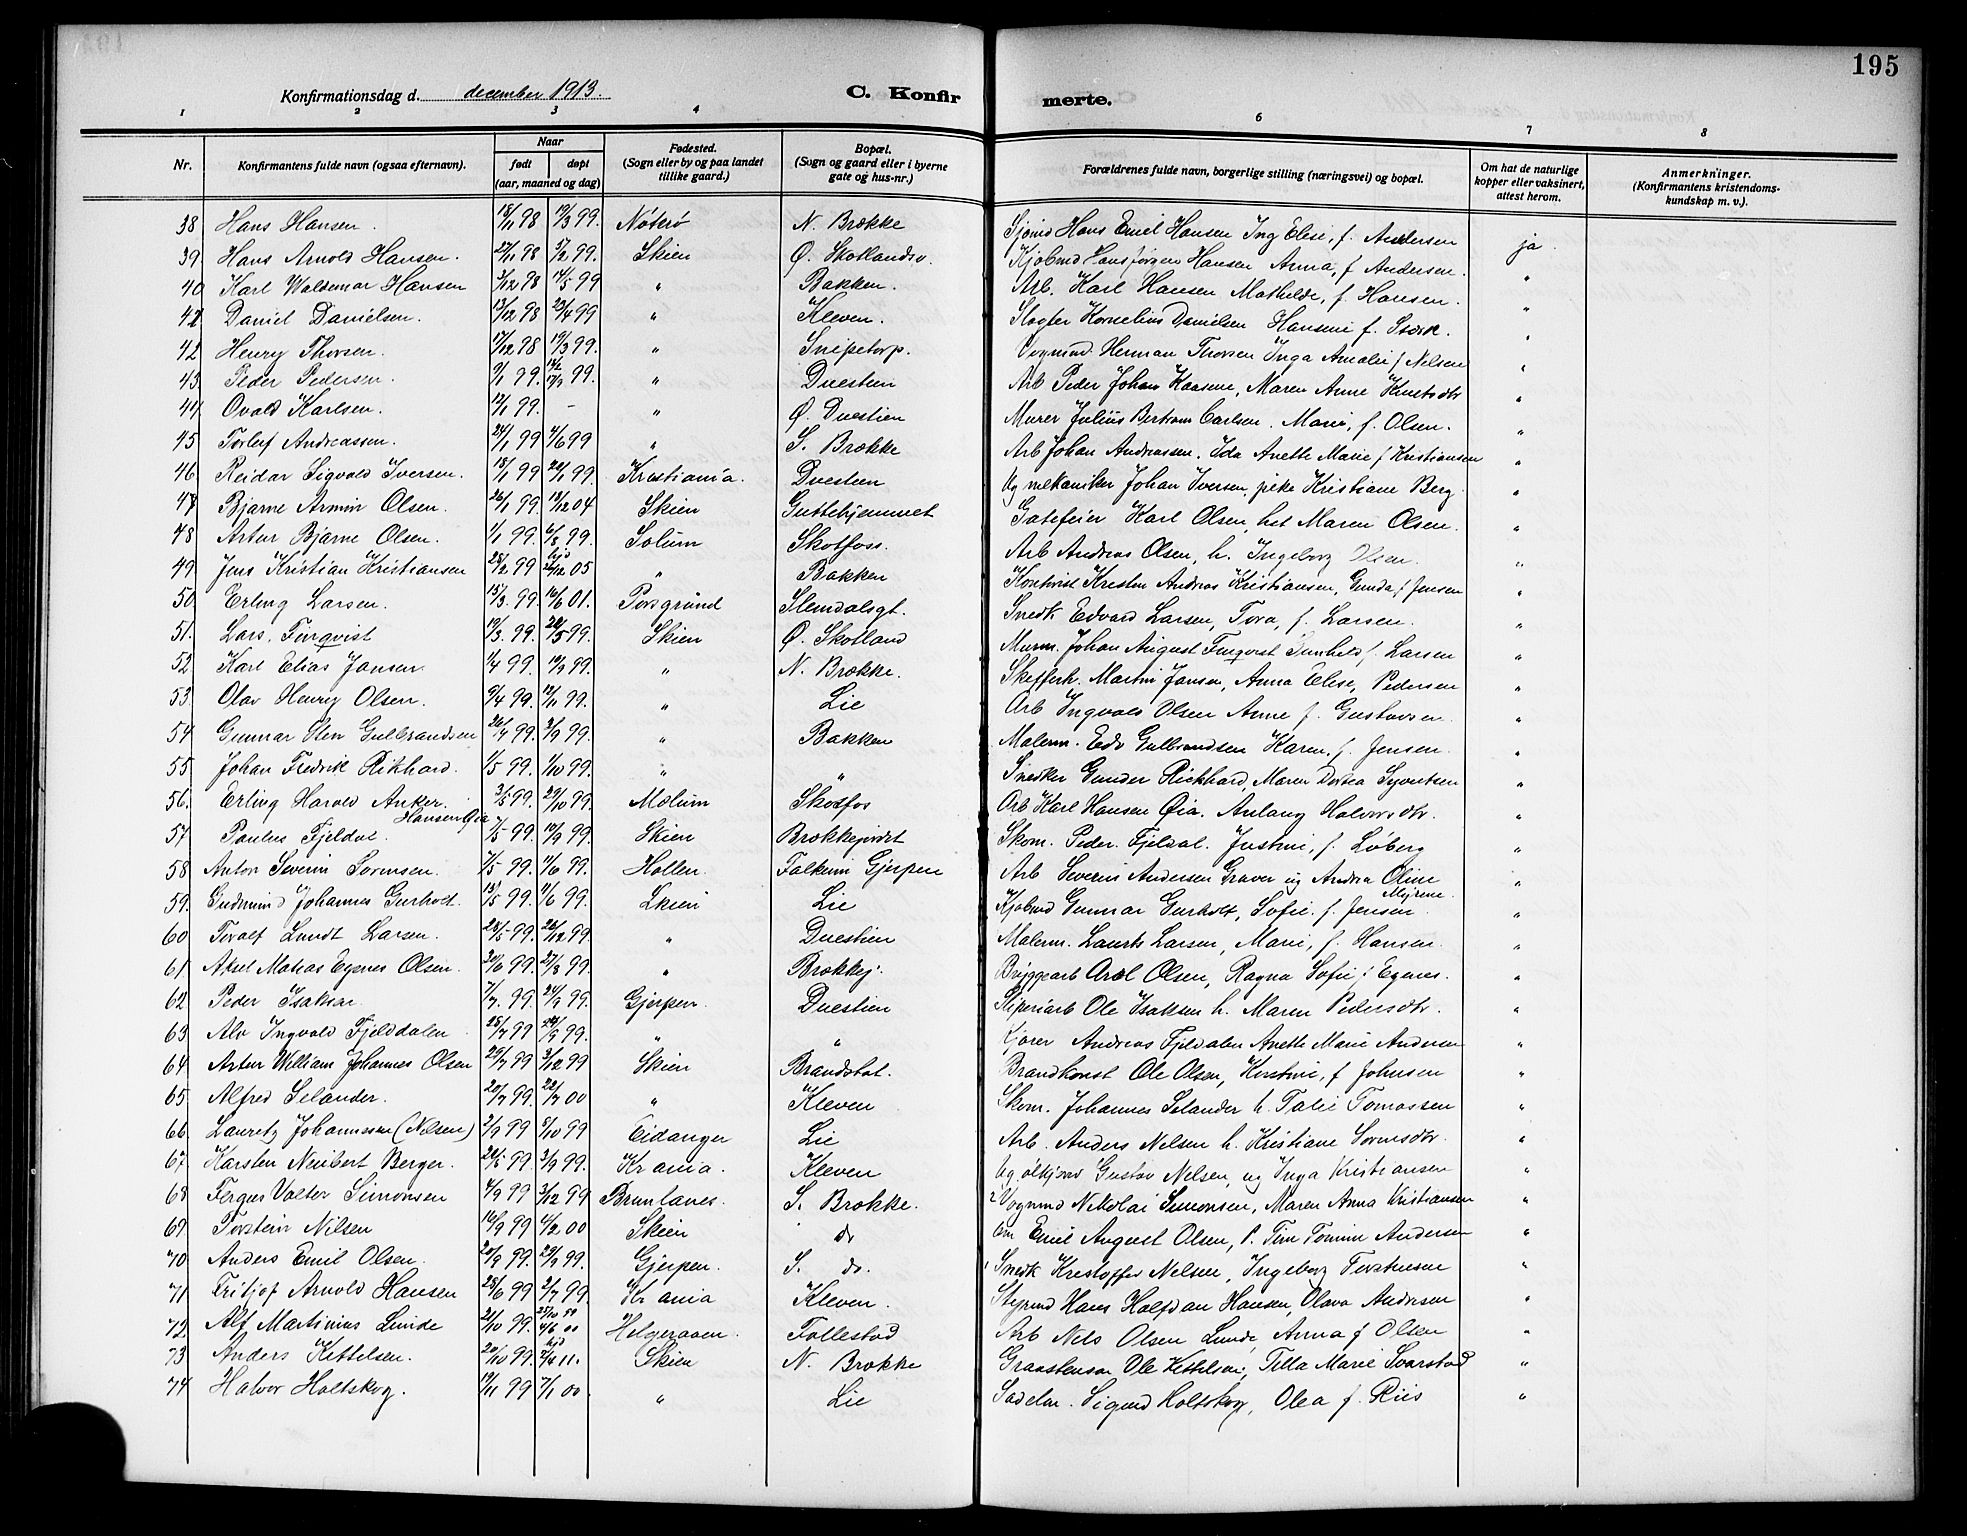 195
Konfirmationsdag d. december 1913.
C. Konfirmerte.
1 2 3 4 6 7 8
Nr. Konfirmantens fulde navn (ogsaa efternavn). Naar født døpt (aar, maaned og dag) Fødested. (Sogn eller by og paa landet tillike gaard.) Bopæl. (Sogn og gaard eller i byerne gate og hus-nr.) Forældrenes fulde navn, borgerlige stilling (næringsvei) og bopæl. Om hat de naturlige kopper eller vaksinert, attest herom. Anmerkninger. (Konfirmantens kristendomskundskap m. v.).
38 Hans Hansen. 18/11 98 19/3 99. Nöterö N. Brække Sjömd Hans Emil Hansen Ing Elise, f. Andersen ja.
39 Hans Arnold Hansen. 27/11 98 5/2 99. Skien Ø. Skotlandsv. Kjöbmd Hans Jörgen Hansen Anna, f Andersen. "
40 Karl Waldemar Hansen 3/12 98 14/5 99 " Bakken. Arb. Karl Hansen Mathilde, f. Hansen. "
41 Daniel Danielsen. 13/12 98 23/4 99 " Kleven. Kornelius Danielsen Hansine f. "
42 Henry Thorsen. 17/12 98 19/3 99. " Snipetorp. Vognmd. Herman Thorsen Inga Amalie f Nelsen "
43 Peder Pedersen. 9/1 99. 99. " Duestien Arb Peder Johan Maren Anne Knutsdtr "
44 Ovald Karlsen. 12/1 99. - " Ø. Duestien Murer Julius Bertram Carlsen. Marie, f. Olsen. "
45 Torleif Andreassen. 24/1 99 4/6 99 " S. Brække Arb Johan Andreassen. Ida Anette Marie f Kristiansen "
46 Reidar Sigvald Iversen. 18/1 99 22/1 99. Kristiania. Duestien Ug mekaniker Johan Iversen, pike Kristiane Berg. "
47 Bjarne Armin Olsen. 26/1 99. 18/12 04 Skien Guttehjemmet Gatefeier Karl Olsen, het Maren Olsen. "
48 Artur Bjarne Olsen. 1/1 99. 6/8 99. Solum Skotfoss. Arb Andreas Olsen, h. Ingeborg "
49 Jens Kristian Kristiansen 28/2 99 hjd 26/12 05 " Bakken Kontorist Kresten Andreas Kristiansen, Gunda f. Jensen "
50 Erling Larsen. 15/3 99. 16/6 01. Porsgrund Slemdalsgt. Snedk Edvard Larsen, Tora, f. Larsen. "
51. Lars, Finqvist 19/3. 99. 28/5 99. Skien Ø. Skotland Murm. Johan August Finqvist Gunhild f. Larsen "
52 Karl Elias Jansen. 1/4 99. 10/9 99. " N. Brække. Skefferh. Martin Jansen, Anna Elise, Pedersen "
53. Olav Henry Olsen. 9/4 99. 12/11 99. " Lie Arb Ingvald Olsen Anne f. Gustavsen "
54 Gunnar Sten Gulbrandsen 26/4 99. 3/9 99. " Bakken Malerm. Edv Gulbrandsen Karen, f. Jensen. "
55 Johan Fredrik Rikhard. 1/5 99. 1/10 99. " " Snedker Gunder Rickhard, Maren Dortea Syvertsen "
56. Erling Harald Anker. Hansen Øia 3/5 99. 29/10 99. Mælum Skotfos Arb Karl Hansen Øia. Anlaug Halvorsdtr. "
57 Paulus Fjeldal. 7/5 99. 10/9 99. Skien Brækkejordet Skom. Peder. Fjeldal. Justine, f. Löberg "
58 Anton Severin Sorensen. 7/5 99. 11/6 99. Hollen. Falkum Gjerpen Arb Severin Andersen Graver ug Andrea Oline Mejrene "
59. Gudmund Johannes Gurholt. 15/5 99. 11/6 99. Skien Lie Kjöbmd Gunnar Gurholt, Sofie. f. Jensen "
60 Toralf Lundt Larsen. 28/5 99. 26/12 99. " Duestien Malerm. Laurits Larsen, Marie, f. Hansen. "
61 Aksel Matias Egenes Olsen. 20/6 99. 27/8 99. " Brækkej. Bryggearb Axel Olsen, Ragna Sofie f Egenes. "
62 Peder Isaksen. 7/7. 99. 24/9 99. Gjerpen. Duestien Sliperiarb Ole Isaksen h. Maren Pedersdtr. "
63 Alv Ingvald Fjelddalen 25/7 99 24/9 99. " " Kjorer Andreas Fjeldalen Anette Marie Andersen "
64 Artur William Johannes Olsen 29/7 99 3/12 99 Skien Brandstat. Brandkonst Ole Olsen, Kirstine, f Johnsen "
65 Alfred Selander. 20/7 99. 22/7 00 " Kleven Skom. Johannes Selander h. Talie Tomassen "
66 Lauritz Johannessen (Nelsen) 2/9 99 8/10 99 Eidanger Lie Arb. Anders Nelsen h. Kristiane Sorensdtr. "
67 Karsten Neubert Berger. 99. 3/9 99. Kr ania. Kleven Gustav Nelsen, ug Inga Kristiansen "
68 Fergus Valter Simonsen 4/9 99 3/12 99 Brunlanes. S. Brække. Vognmd Nikolai Simonsen, Maren Anna Kristiansen "
69 Torstein Nilsen 16/9 99 4/2 00 Skien do Emil August Olsen, Andersen "
70 Anders Emil Olsen. 20/9 99. 29/9 99. Gjerpen. S. do. Snedk Kristoffer Nelsen, Ingeborg Torstensen "
71 Fritjof Arnold Hansen 28/6 99 2/7 99. Kr ania Kleven. Styrmd Hans Halfdan Hansen, Olava Andresen "
72 Alf Martinius Lunde 21/10 99. 4/6 00 Helgeraaen. Follestad Arb Nels Olsen Lunde, Anna f Olsen "
73 Anders Kittelsen. 20/10 99. hjd 7/4 11. Skien N. Brække Graastensm Ole Kittelsen, Tilla Marie Svarstad "
74 Halvor Holtskog. 19/11 99 7/1 00. " Lie Sadelm. Sigurd Holtskog, Olea f. Riis "